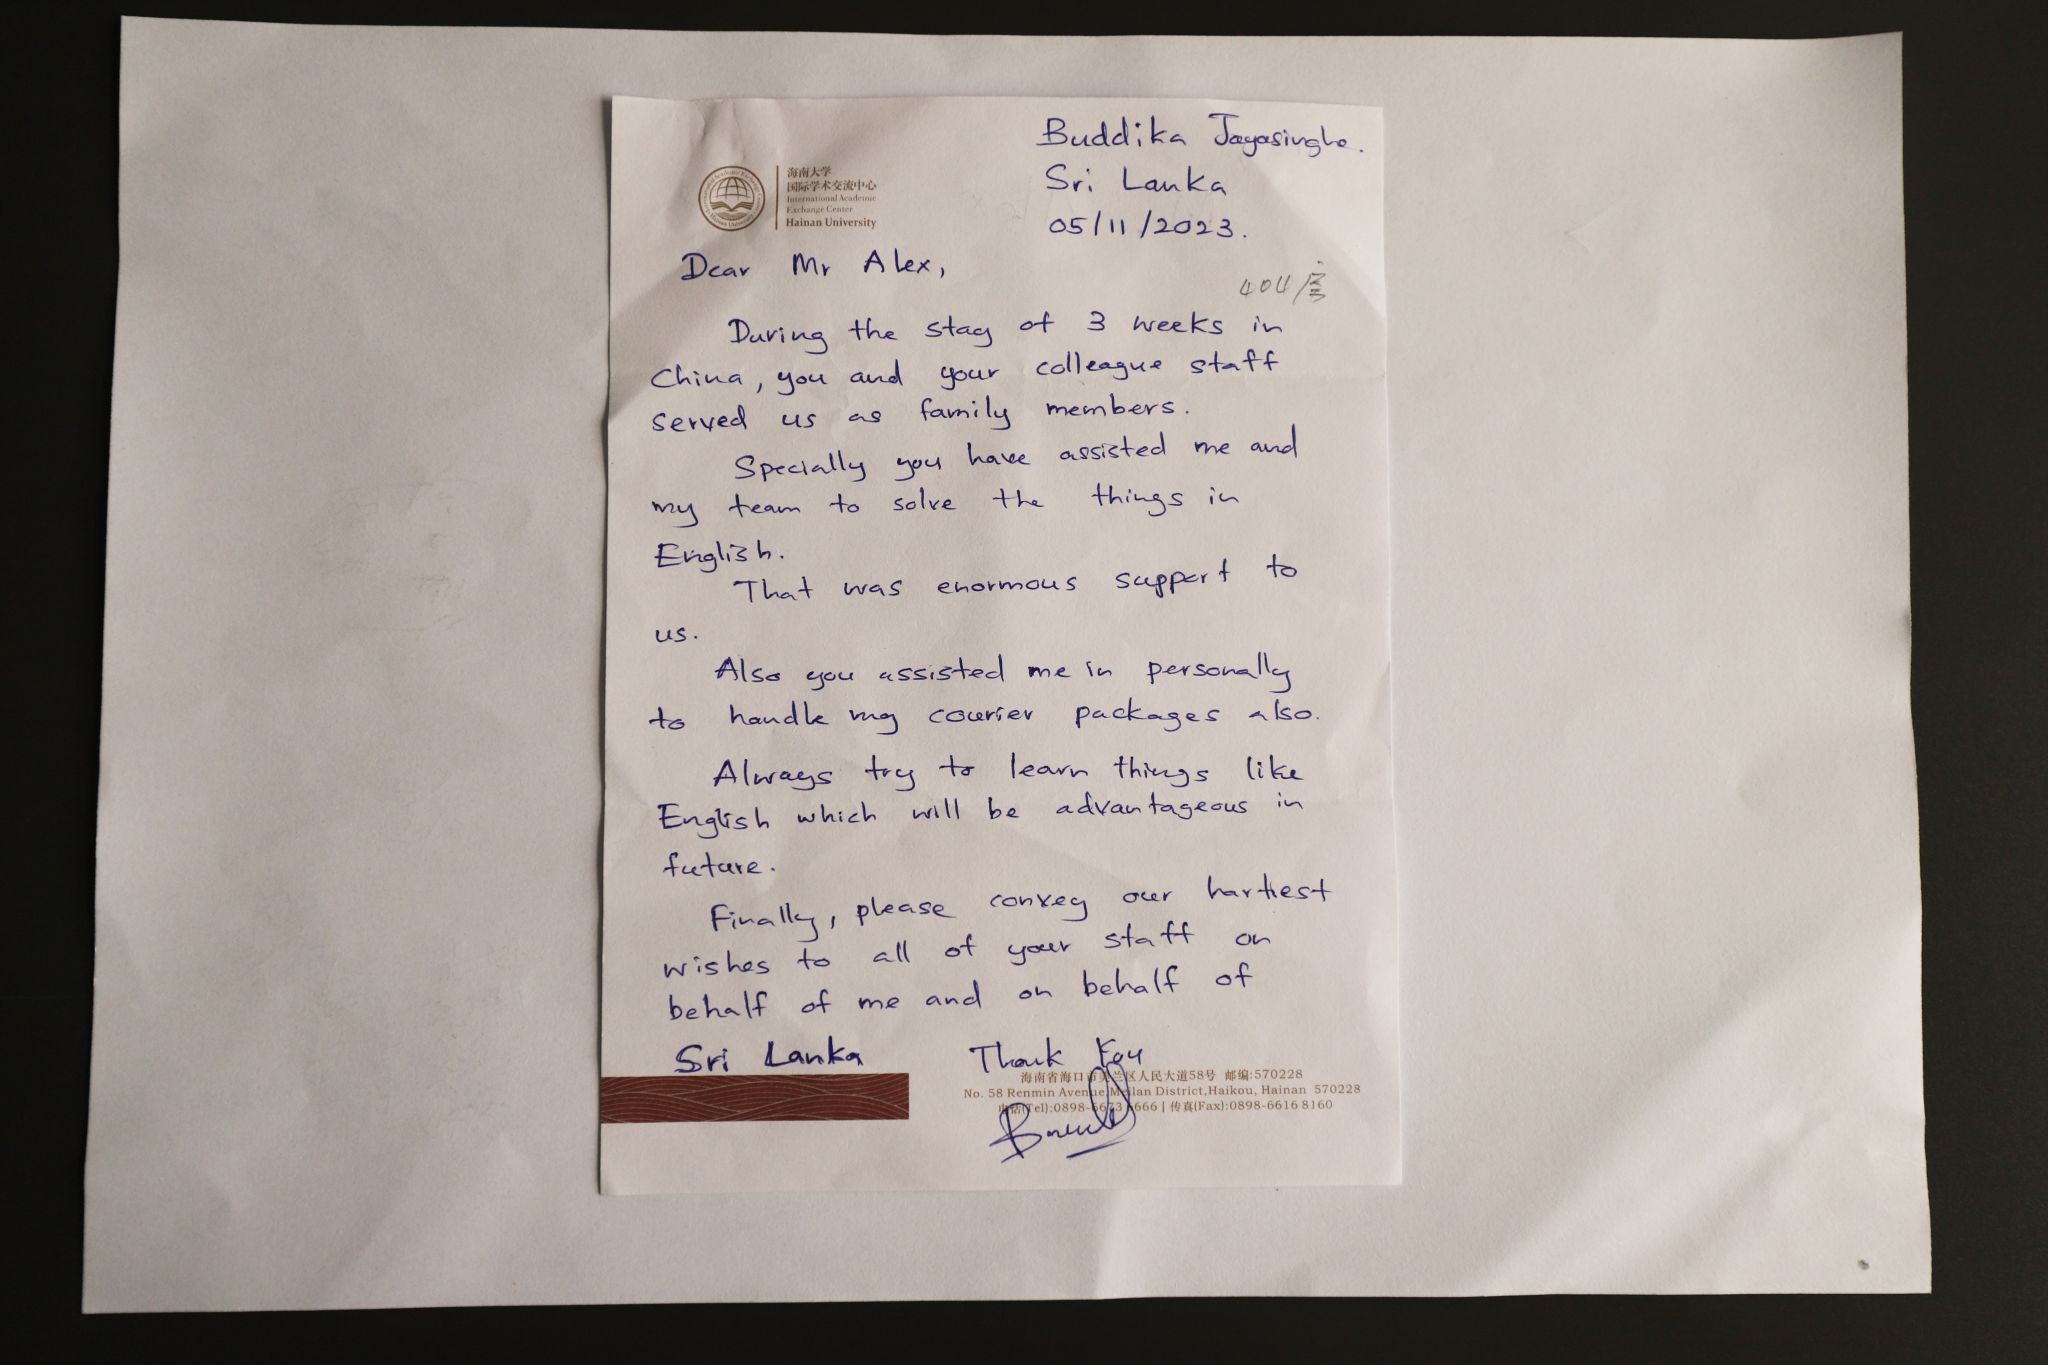 Buddika Jayasinghe.
Sri Lanka
05/11/2023.
海南大学
国际学术交流中心
International Academic
Exchange Center
Hainan University
Dear Mr Alex,
404/
During the stay of 3 weeks in
China, you and your colleague staff
served us as family members.
Specially you have assisted me and
my team to solve the things in
English.
That was enormous support to
us.
Also you assisted me in personally
to handle my courier packages also.
Always try to learn things like
English which will be advantageous in
future.
Finally, please convey our hartiest
wishes to all of your staff on
behalf of me and on behalf of
Sri Lanka
Thank You
海南省海口市美兰区人民大道58号 邮编:570228
No. 58 Renmin Avenue, Meilan District, Haikou, Hainan 570228
电话(Tel):0898-6673 6666 | 传真(Fax):0898-6616 8160